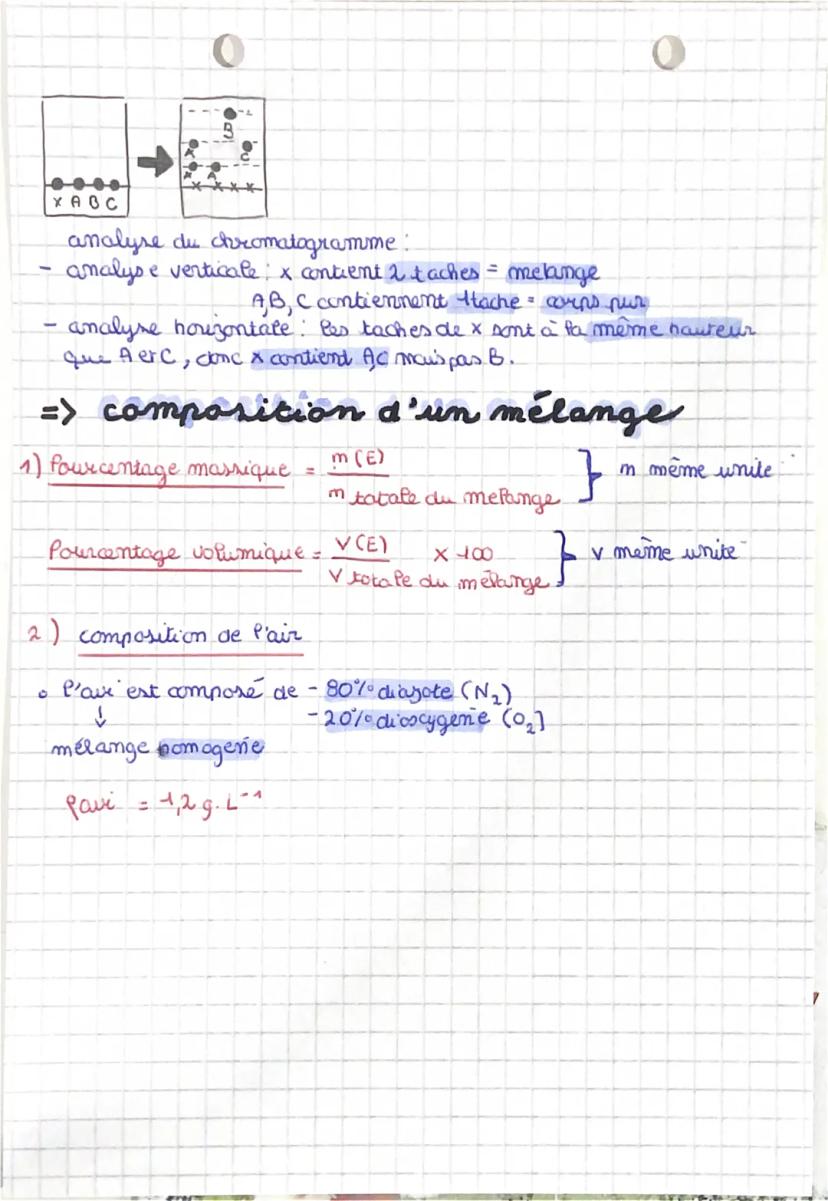 B
x C
x A
x x x x
x A B C
analyse du chromatogramme :
- analyse verticale : x contient 2 taches = melange
A,B,C contiennent 1 tache = corps pur
- analyse horizontale : les taches de x sont à la même hauteur
que A et C, donc x contient A,C mais pas B.
=> composition d'un mélange
1) Pourcentage massique = m (E) / m totale du melange } m même unite
Pourcentage volumique = V (E) / V totale du mélange x 100 } v même unite
2) composition de l'air
• l'air est composé de - 80% diazote (N₂)
↓ - 20% dioxygene (O₂)
mélange homogene
ρair = 1,2 g. L⁻¹